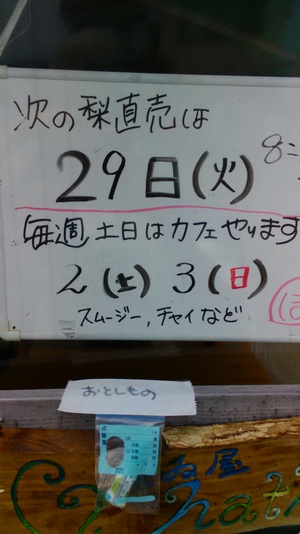 次の梨直売は
29日(火)
8=
毎週土日はカフェやります
2(土) 3(日)
スムージー,チャイなど
おとしもの